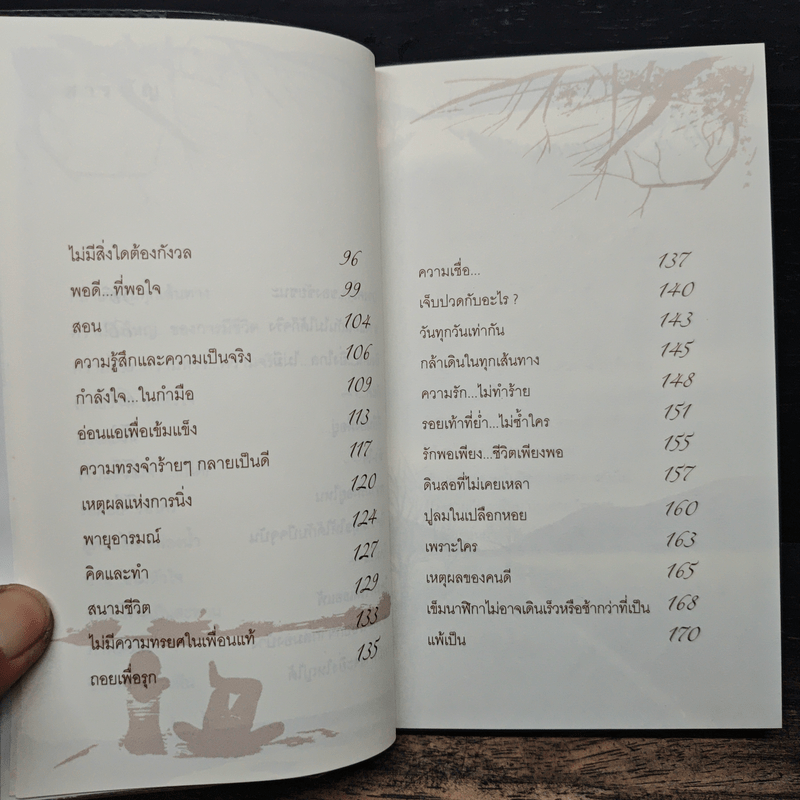 ไม่มีสิ่งใดต้องกังวล 96
พอดี...ที่พอใจ 99
สอน 104
ความรู้สึกและความเป็นจริง 106
กำลังใจ...ในกำมือ 109
อ่อนแอเพื่อเข้มแข็ง 113
ความทรงจำร้ายๆ กลายเป็นดี 117
เหตุผลแห่งการนิ่ง 120
พายุอารมณ์ 124
คิดและทำ 127
สนามชีวิต 129
ไม่มีความทรยศในเพื่อนแท้ 133
ถอยเพื่อรุก 135
ความเชื่อ... 137
เจ็บปวดกับอะไร ? 140
วันทุกวันเท่ากัน 143
กล้าเดินในทุกเส้นทาง 145
ความรัก...ไม่ทำร้าย 148
รอยเท้าที่ย่ำ...ไม่ซ้ำใคร 151
รักพอเพียง...ชีวิตเพียงพอ 155
ดินสอที่ไม่เคยเหลา 157
ปูลมในเปลือกหอย 160
เพราะใคร 163
เหตุผลของคนดี 165
เข็มนาฬิกาไม่อาจเดินเร็วหรือช้ากว่าที่เป็น 168
แพ้เป็น 170